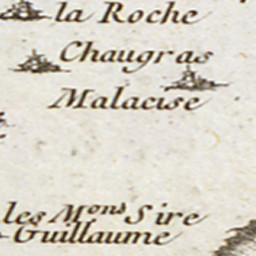 la Roche
Chaugras
Malacise
les Mons Sire
Guillaume